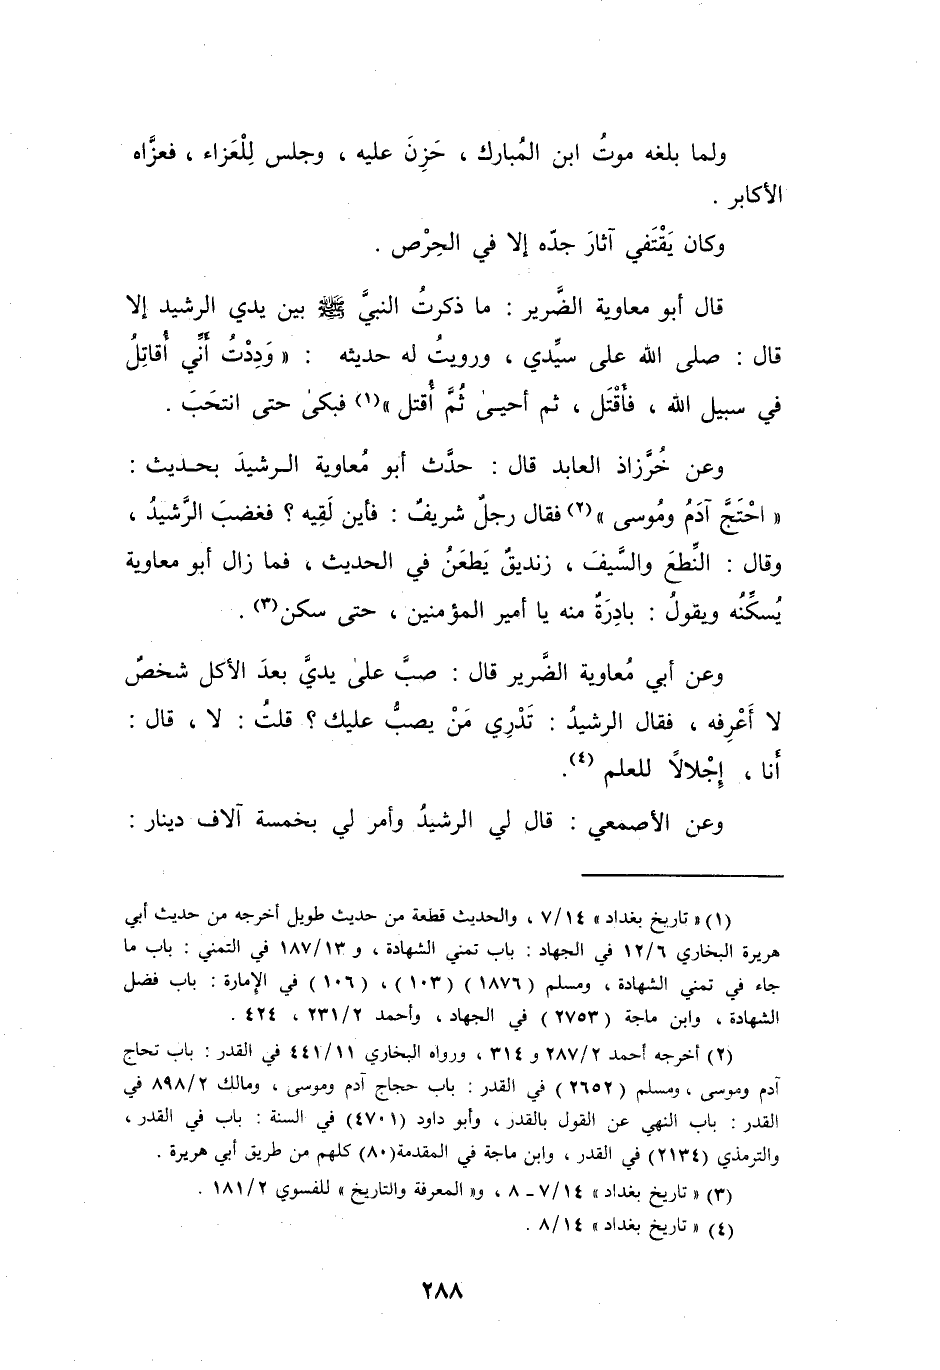 ولما بلغه موتُ ابن المُبارك ، حَزِنَ عليه ، وجلس لِلْعَزاء ، فعزَّاه
الأكابر .
وكان يَقْتَفي آثارَ جدّه إلا في الحِرْص .
قال أبو معاوية الضَّرير : ما ذكرتُ النبيَّ ﷺ بين يدي الرشيد إلا
قال : صلى الله على سيِّدي ، ورويتُ له حديثه : « وَدِدْتُ أَنِّي أُقاتِلُ
في سبيل الله ، فأُقْتَل ، ثم أحيىٰ ثُمَّ أُقتل »(١) فبكىٰ حتى انتحَبَ .
وعن خُرَّزاذ العابد قال : حدَّث أبو مُعاوية الرشيدَ بحديث :
« احْتَجَّ آدَمُ ومُوسى »(٢) فقال رجلٌ شريفٌ : فأين لَقِيه ؟ فغضبَ الرَّشيدُ ،
وقال : النِّطعَ والسَّيفَ ، زنديقٌ يَطعَنُ في الحديث ، فما زال أبو معاوية
يُسكِّنُه ويقولُ : بادِرَةٌ منه يا أمير المؤمنين ، حتى سكن(٣) .
وعن أبي مُعاوية الضَّرير قال : صبَّ علىٰ يديَّ بعدَ الأكل شخصٌ
لا أَعْرِفه ، فقال الرشيدُ : تَدْرِي مَنْ يصبُّ عليك ؟ قلتُ : لا ، قال :
أَنا ، إِجْلالاً للعلم (٤).
وعن الأصمعي : قال لي الرشيدُ وأمر لي بخمسة آلاف دينار :
(١) « تاريخ بغداد » ٧/١٤ ، والحديث قطعة من حديث طويل أخرجه من حديث أبي
هريرة البخاري ١٢/٦ في الجهاد : باب تمني الشهادة ، و ١٨٧/١٣ في التمني : باب ما
جاء في تمني الشهادة ، ومسلم (١٨٧٦) (١٠٣) ، (١٠٦) في الإمارة : باب فضل
الشهادة ، وابن ماجة (٢٧٥٣) في الجهاد ، وأحمد ٢٣١/٢ ، ٤٢٤ .
(٢) أخرجه أحمد ٢٨٧/٢ و ٣١٤ ، ورواه البخاري ٤٤١/١١ في القدر : باب تحاج
آدم وموسى ، ومسلم (٢٦٥٢) في القدر : باب حجاج آدم وموسى ، ومالك ٨٩٨/٢ في
القدر : باب النهي عن القول بالقدر ، وأبو داود (٤٧٠١) في السنة : باب في القدر ،
والترمذي (٢١٣٤) في القدر ، وابن ماجة في المقدمة(٨٠) كلهم من طريق أبي هريرة .
(٣) « تاريخ بغداد » ٧/١٤ - ٨ ، و« المعرفة والتاريخ » للفسوي ١٨١/٢ .
(٤) « تاريخ بغداد » ٨/١٤ .
٢٨٨